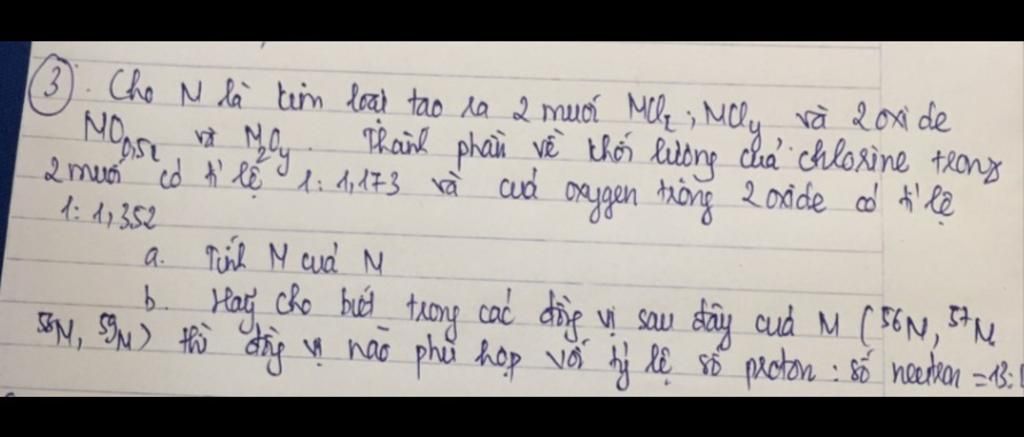 ③. Cho M là kim loại tạo ra 2 muối MClx, MCly và 2 oxide
MO0,5x và M2Oy. Thành phần về khối lượng của chlorine trong
2 muối có tỉ lệ 1: 1,173 và của oxygen trong 2 oxide có tỉ lệ
1: 1,352
a. Tính M của M
b. Hãy cho biết trong các đồng vị sau đây của M (56M, 57M
58M, 59M) thì đồng vị nào phù hợp với tỷ lệ số proton : số neutron = 13: